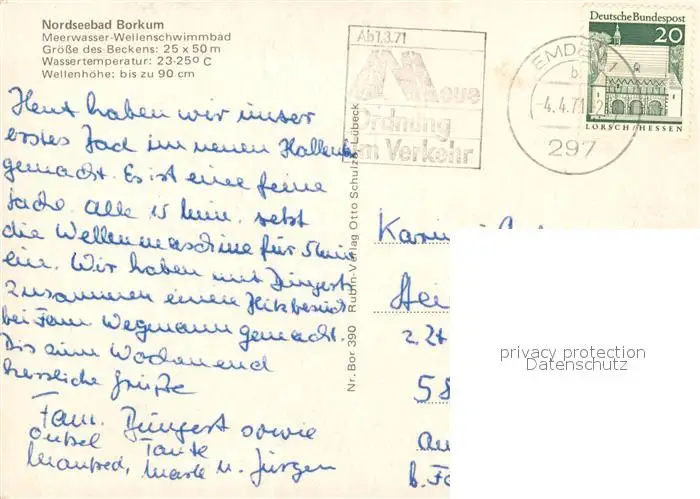 Nordseebad Borkum
Meerwasser-Wellenschwimmbad
Größe des Beckens: 25 x 50 m
Wassertemperatur: 23-25° C
Wellenhöhe: bis zu 90 cm
Ab 1.3.71
Neue
Ordnung
im Verkehr
EMDEN
-4.4.71
297
Deutsche Bundespost
20
LORSCH/HESSEN
Heut haben wir unser
erstes Bad im neuen Hallenb
gemacht. Es ist eine feine
Sache. Alle 15 Min. setzt
die Wellenmaschine für 5 Min
ein. Wir haben mit Düngerts
zusammen einen
bei Fam. Wegmann gemacht.
Bis zum Wochenend
herzliche Grüße
Fam. Düngert sowie
Onkel Tante
Manfred, u. Jürgen
Nr. Bor 390 Rubin-Verlag Otto Schulze, Lübeck
Karin
Hei
z. Zt
58
b. Fa
privacy protection
Datenschutz